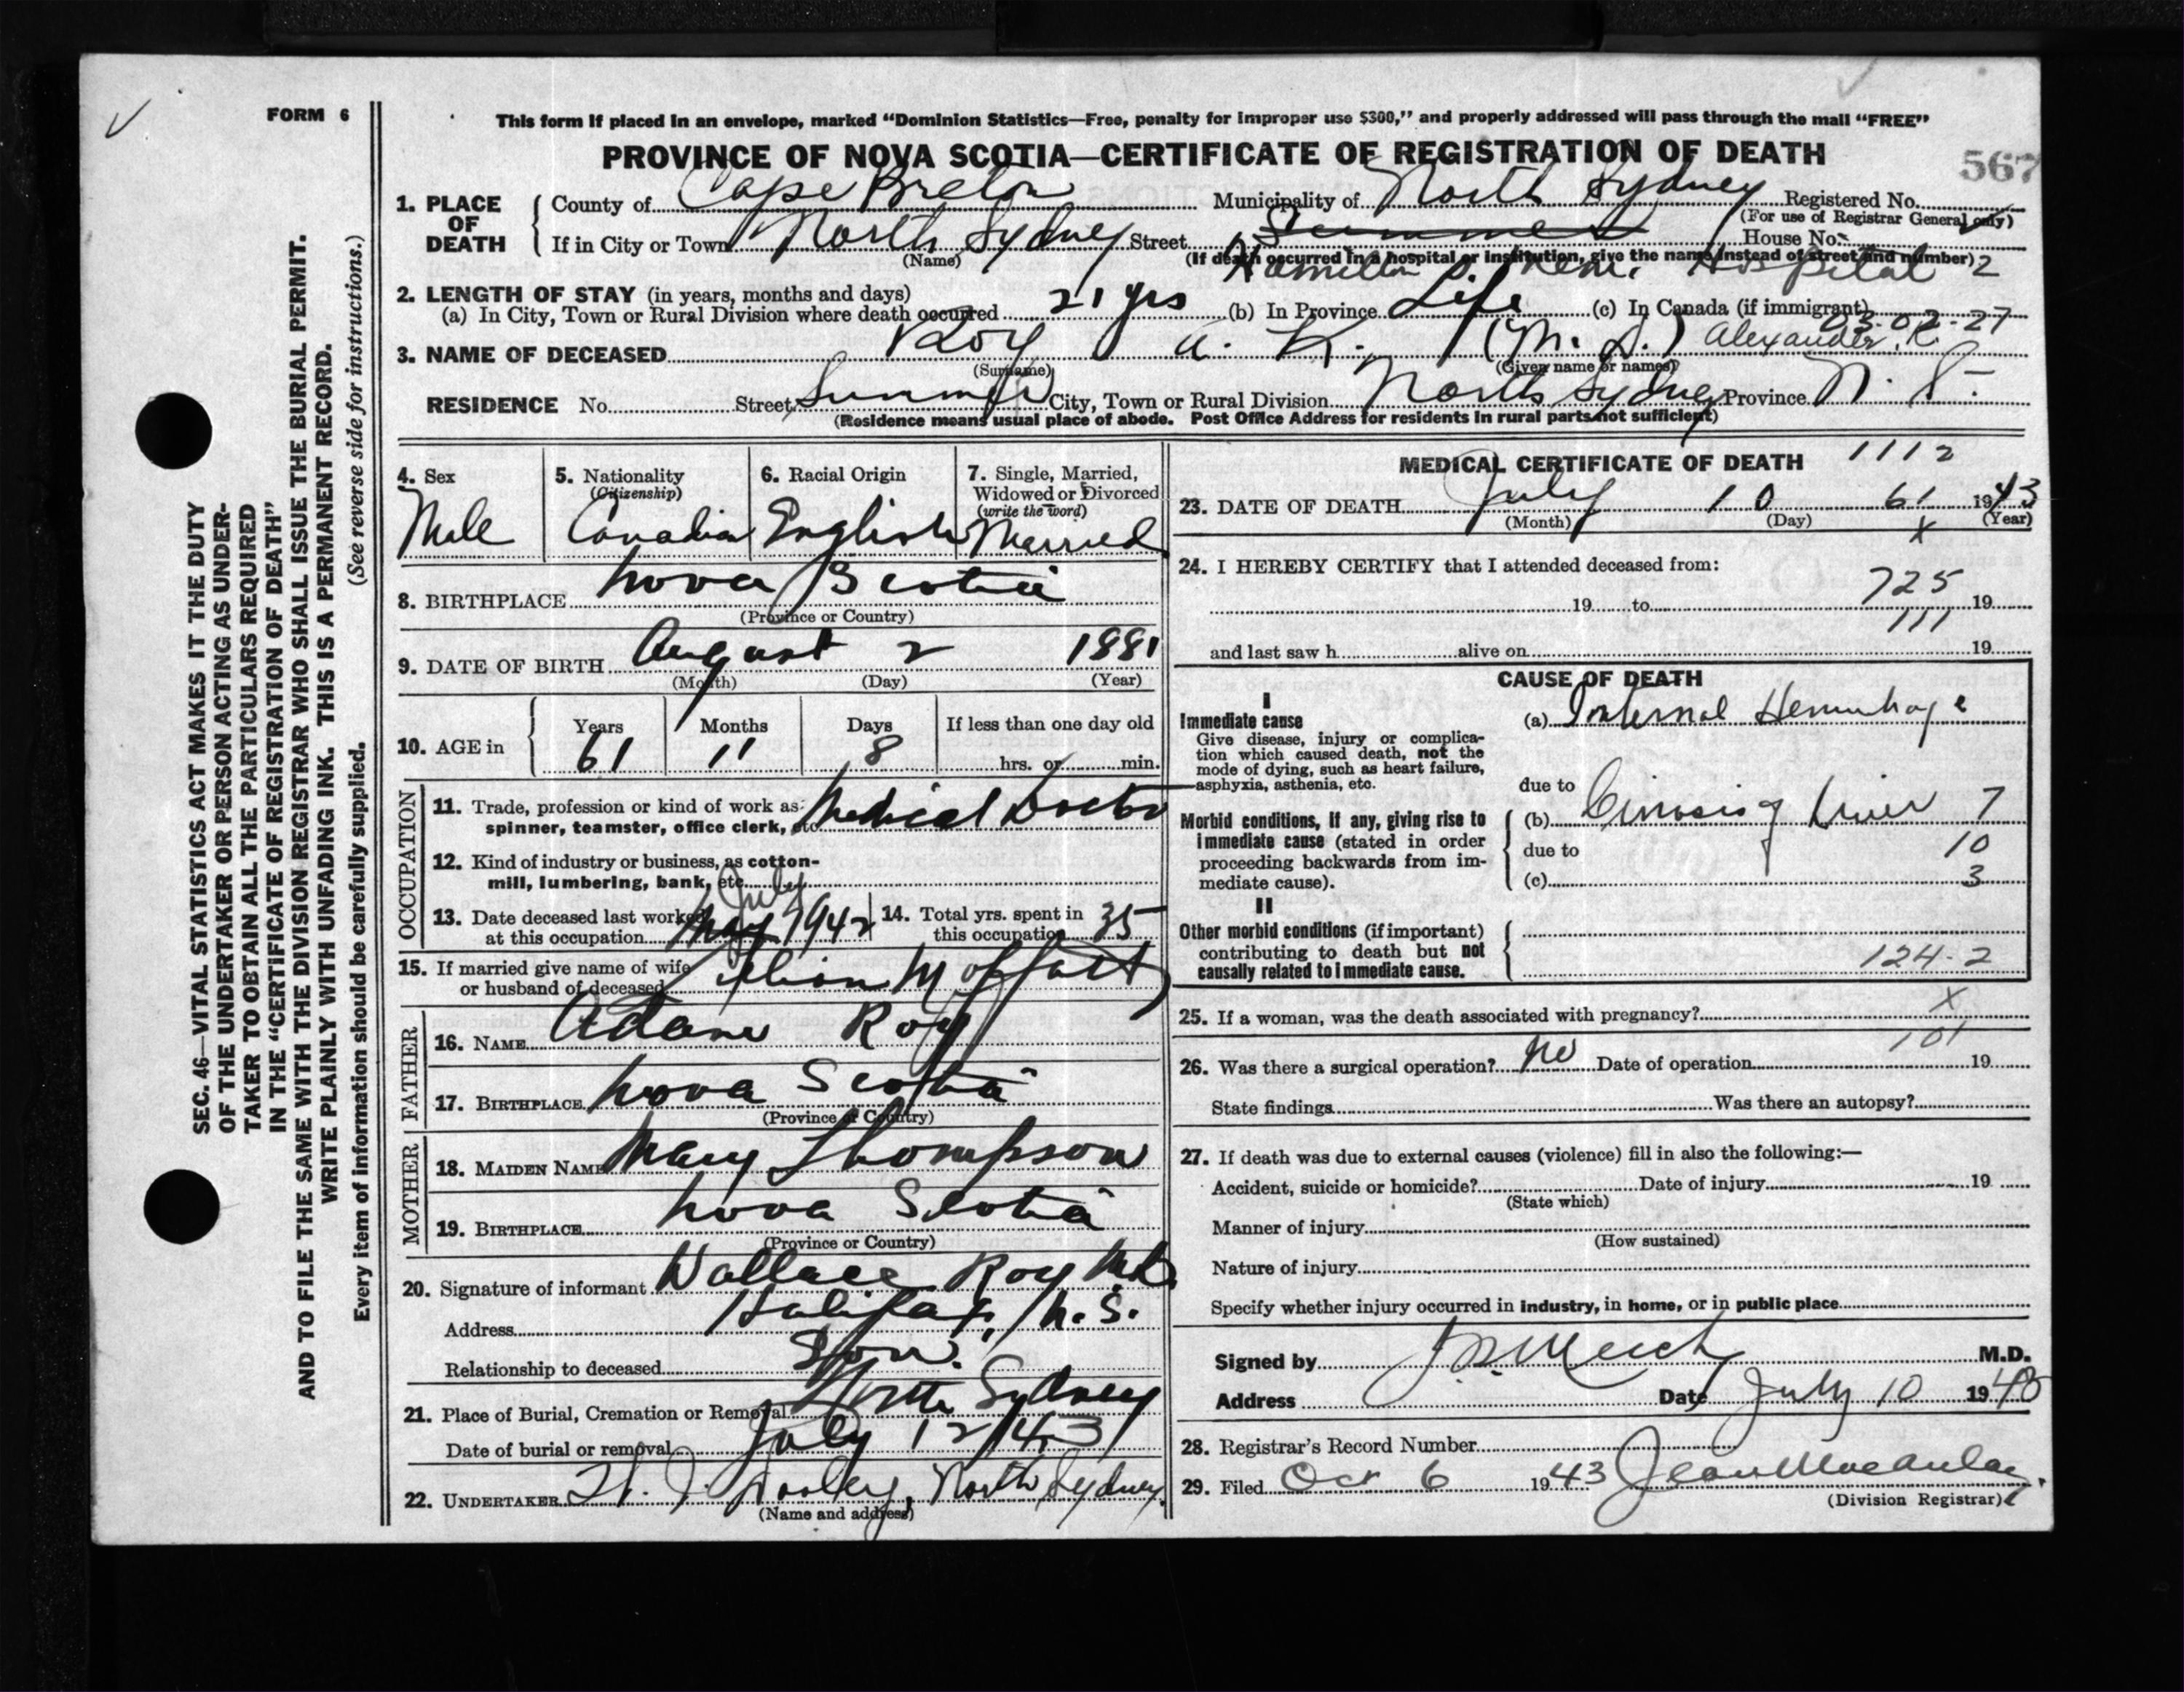 FORM 6
This form if placed in an envelope, marked “Dominion Statistics—Free, penalty for improper use $300,” and properly addressed will pass through the mail “FREE”
PROVINCE OF NOVA SCOTIA—CERTIFICATE OF REGISTRATION OF DEATH
567
1. PLACE OF DEATH
County of Cape Breton Municipality of North Sydney Registered No.
(For use of Registrar General only)
If in City or Town North Sydney Street Summer House No.
(Name) (If death occurred in a hospital or institution, give the name instead of street and number)
Hamilton Mem. Hospital 2
2. LENGTH OF STAY (in years, months and days)
(a) In City, Town or Rural Division where death occurred 21 yrs (b) In Province Life (c) In Canada (if immigrant)
03-02-27
3. NAME OF DECEASED Roy A. K. (M.D.) Alexander K.
(Surname) (Given name or names)
RESIDENCE No. Street Summer City, Town or Rural Division North Sydney Province N. S.
(Residence means usual place of abode. Post Office Address for residents in rural parts not sufficient)
4. Sex
Male
5. Nationality
(Citizenship)
Canadian
6. Racial Origin
English
7. Single, Married,
Widowed or Divorced
(write the word)
Married
8. BIRTHPLACE Nova Scotia
(Province or Country)
9. DATE OF BIRTH August 2 1881
(Month) (Day) (Year)
10. AGE in
Years Months Days If less than one day old
61 11 8 hrs. or min.
OCCUPATION
11. Trade, profession or kind of work as
spinner, teamster, office clerk, etc. Medical Doctor
12. Kind of industry or business, as cotton-
mill, lumbering, bank, etc.
13. Date deceased last worked
at this occupation May July 1942
14. Total yrs. spent in
this occupation 35
15. If married give name of wife
or husband of deceased Moffatt
FATHER
16. NAME Adam Roy
17. BIRTHPLACE Nova Scotia
(Province or Country)
MOTHER
18. MAIDEN NAME Mary Thompson
19. BIRTHPLACE Nova Scotia
(Province or Country)
20. Signature of informant Wallace Roy M.D.
Address Halifax, N.S.
Relationship to deceased Son.
21. Place of Burial, Cremation or Removal North Sydney
Date of burial or removal July 12/43
22. UNDERTAKER North Sydney.
(Name and address)
MEDICAL CERTIFICATE OF DEATH 1112
23. DATE OF DEATH July 10 61 1943
(Month) (Day) (Year)
x
24. I HEREBY CERTIFY that I attended deceased from:
725
19 to 19
111
and last saw h alive on 19
CAUSE OF DEATH
I
Immediate cause
Give disease, injury or complica-
tion which caused death, not the
mode of dying, such as heart failure,
asphyxia, asthenia, etc.
(a) Internal Hemorrhage
due to
Morbid conditions, if any, giving rise to
immediate cause (stated in order
proceeding backwards from im-
mediate cause).
(b) Cirrosis of Liver 7
due to 10
(c) 3
II
Other morbid conditions (if important)
contributing to death but not
causally related to immediate cause.
124-2
x
25. If a woman, was the death associated with pregnancy?
101
26. Was there a surgical operation? No Date of operation 19
State findings Was there an autopsy?
27. If death was due to external causes (violence) fill in also the following:—
Accident, suicide or homicide? Date of injury 19
(State which)
Manner of injury
(How sustained)
Nature of injury
Specify whether injury occurred in industry, in home, or in public place
Signed by M.D.
Address Date July 10 19
28. Registrar's Record Number
29. Filed Oct 6 1943 Jean MacAulay.
(Division Registrar)
SEC. 46—VITAL STATISTICS ACT MAKES IT THE DUTY
OF THE UNDERTAKER OR PERSON ACTING AS UNDER-
TAKER TO OBTAIN ALL THE PARTICULARS REQUIRED
IN THE “CERTIFICATE OF REGISTRATION OF DEATH”
AND TO FILE THE SAME WITH THE DIVISION REGISTRAR WHO SHALL ISSUE THE BURIAL PERMIT.
WRITE PLAINLY WITH UNFADING INK. THIS IS A PERMANENT RECORD.
Every item of information should be carefully supplied. (See reverse side for instructions.)